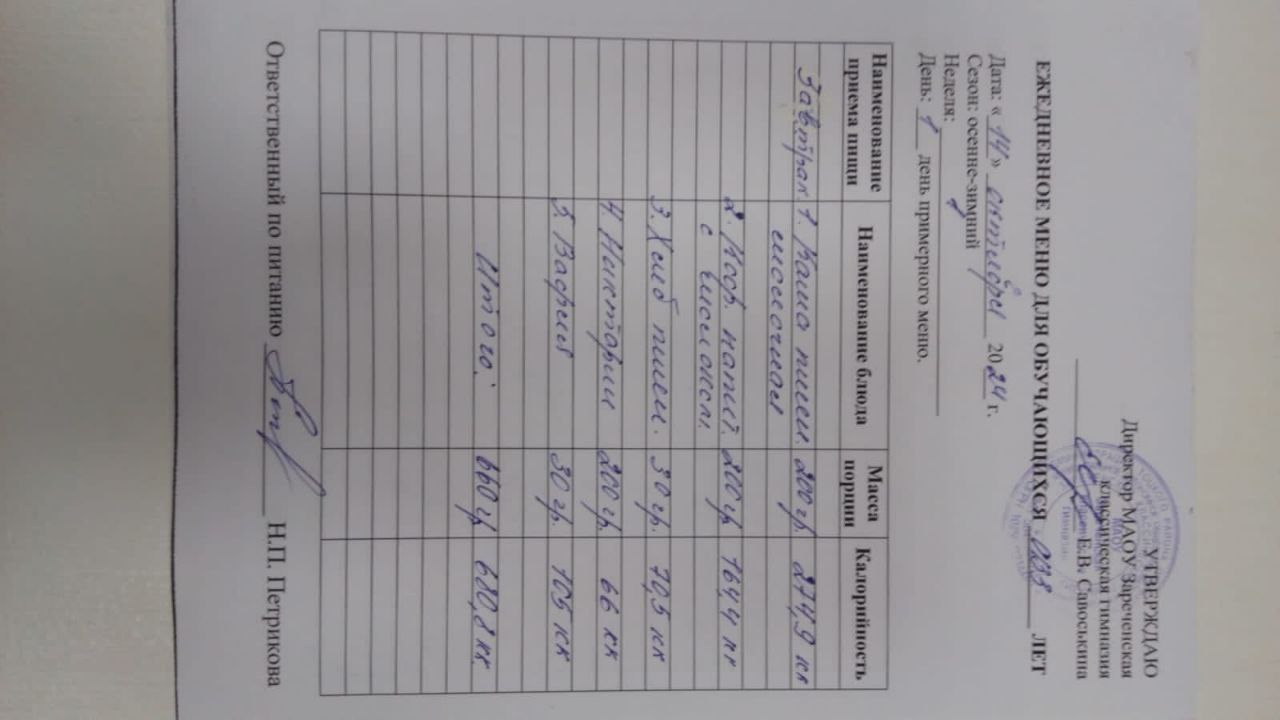 УТВЕРЖДАЮ
Директор МАОУ Зареченская
классическая гимназия
Е.В. Савоськина
ЕЖЕДНЕВНОЕ МЕНЮ ДЛЯ ОБУЧАЮЩИХСЯ ЛЕТ
Дата: «14» октября 2024 г.
Сезон: осенне-зимний
Неделя: 1
День: 1 день примерного меню.
Наименование приема пищи Наименование блюда Масса порции Калорийность
Завтрак 1. Каша пшен. 200 гр. 274,9 кк
молочная
2. Коф. напит. 200 гр 164,4 кк
с молоком.
3. Хлеб пшен. 30 гр. 70,5 кк
4. 200 гр. 66 кк
5. Вафли 30 гр. 105 кк
Итого: 660 гр 680,8 кк
Ответственный по питанию Н.П. Петрикова